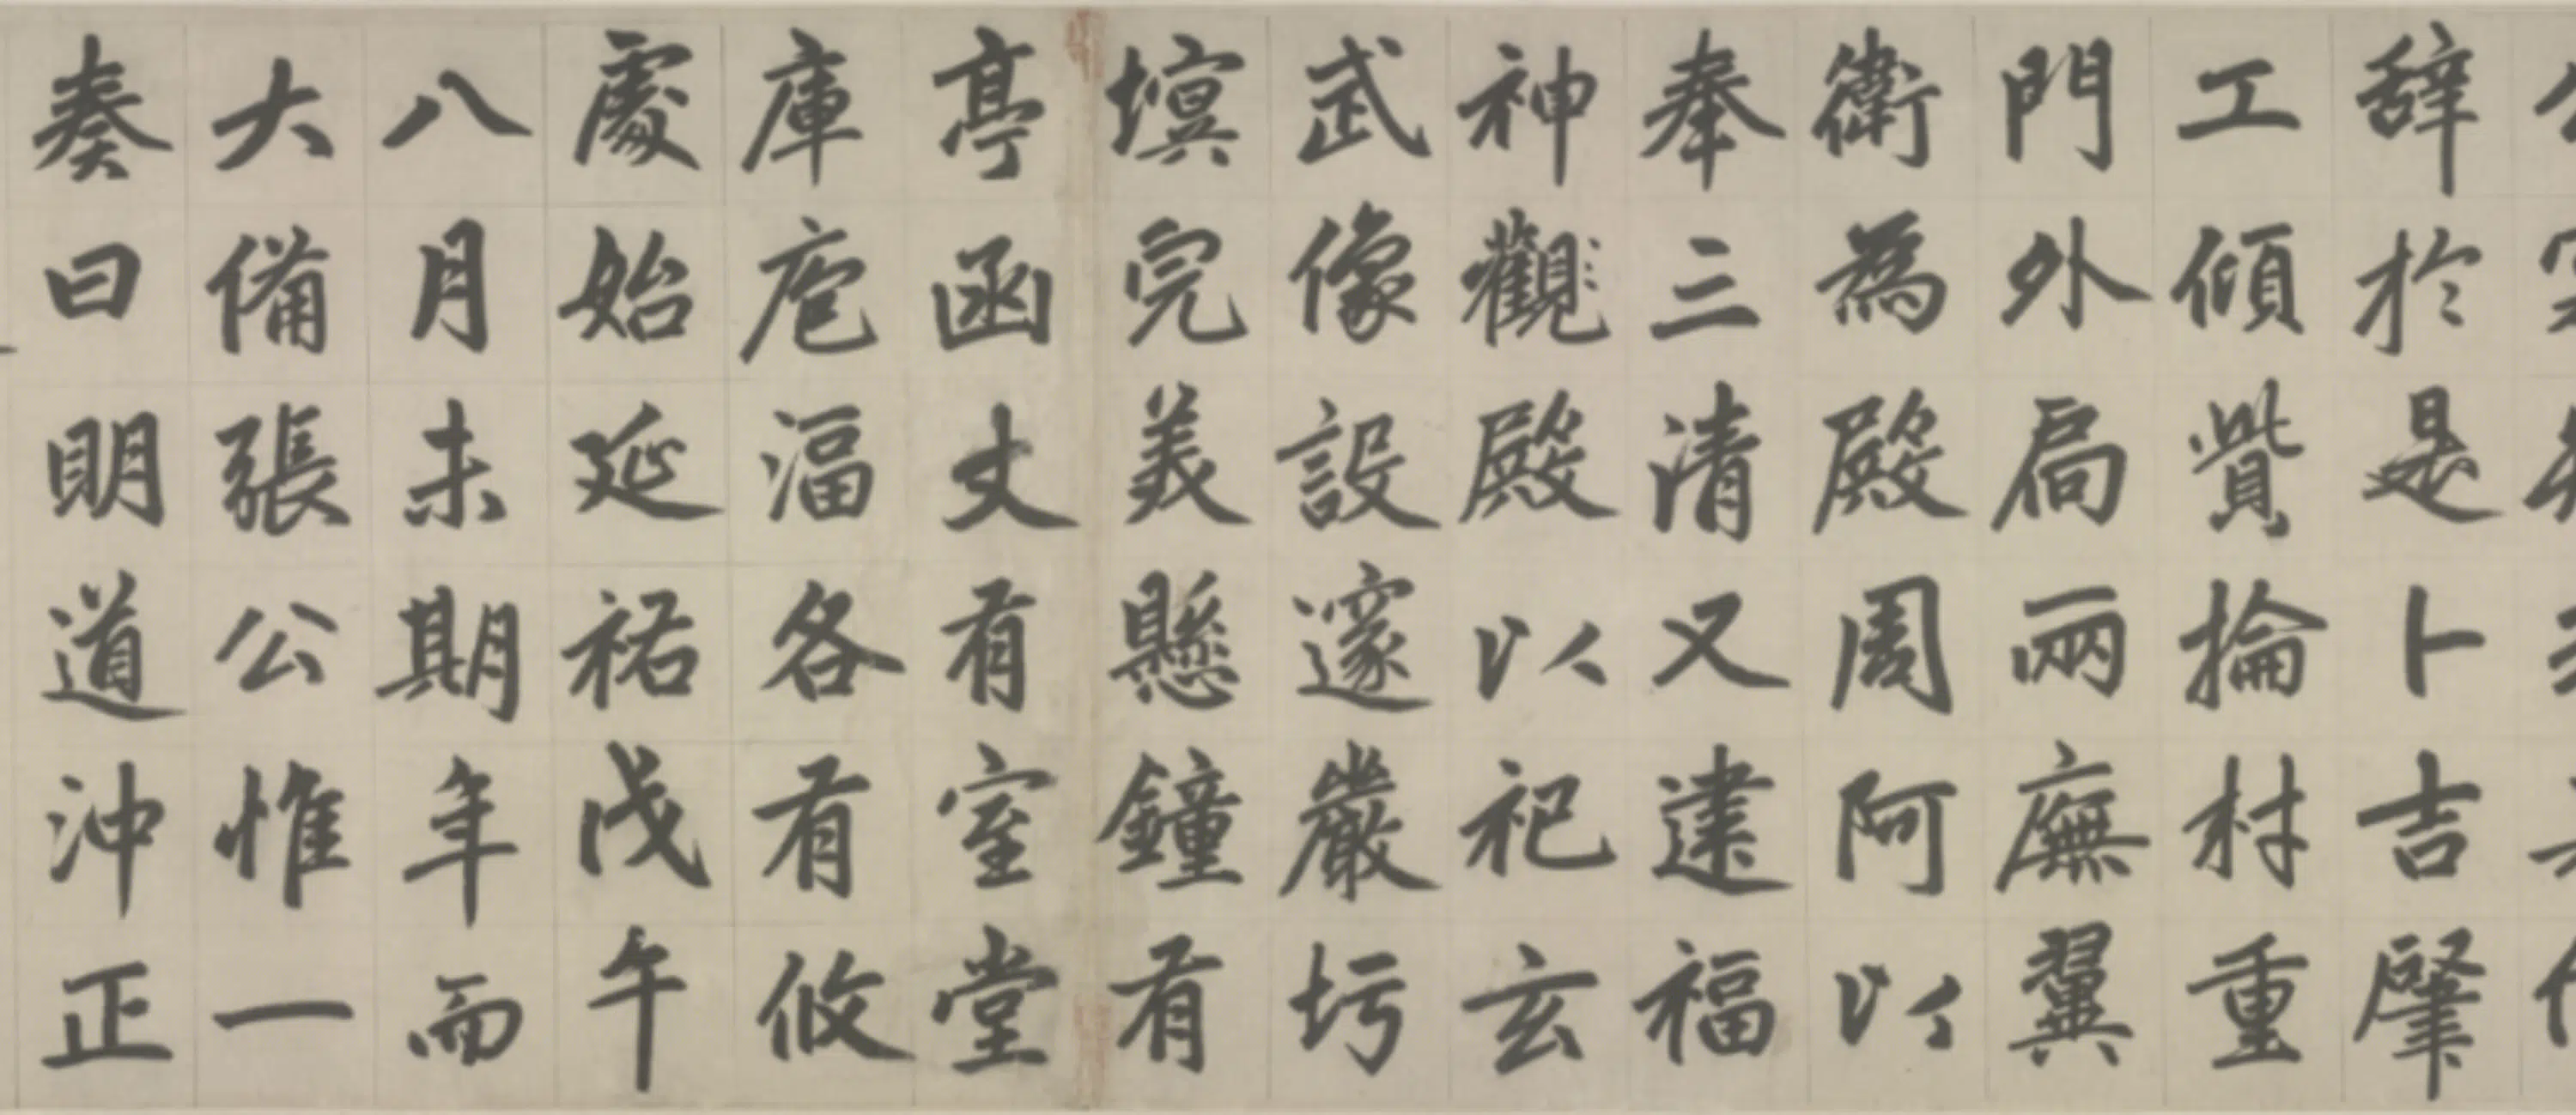 辞於是卜吉肇
工傾貲掄材重
門外局兩廡翼
衛為殿周阿以
奉三清又建福
神觀殿以祀玄
武像設邃嚴圬
塓完美懸鐘有
亭函丈有室堂
庫庖湢各有攸
處始延祐戊午
八月未期年而
大備張公惟一
奏曰明道沖正